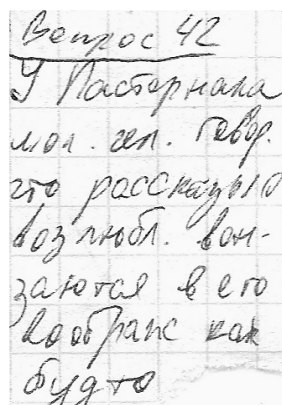 Вопрос 42
У Пастернака
мол. чел. говор.
что рассказы
возлюбл. вон-
заются в его
воображ как
будто